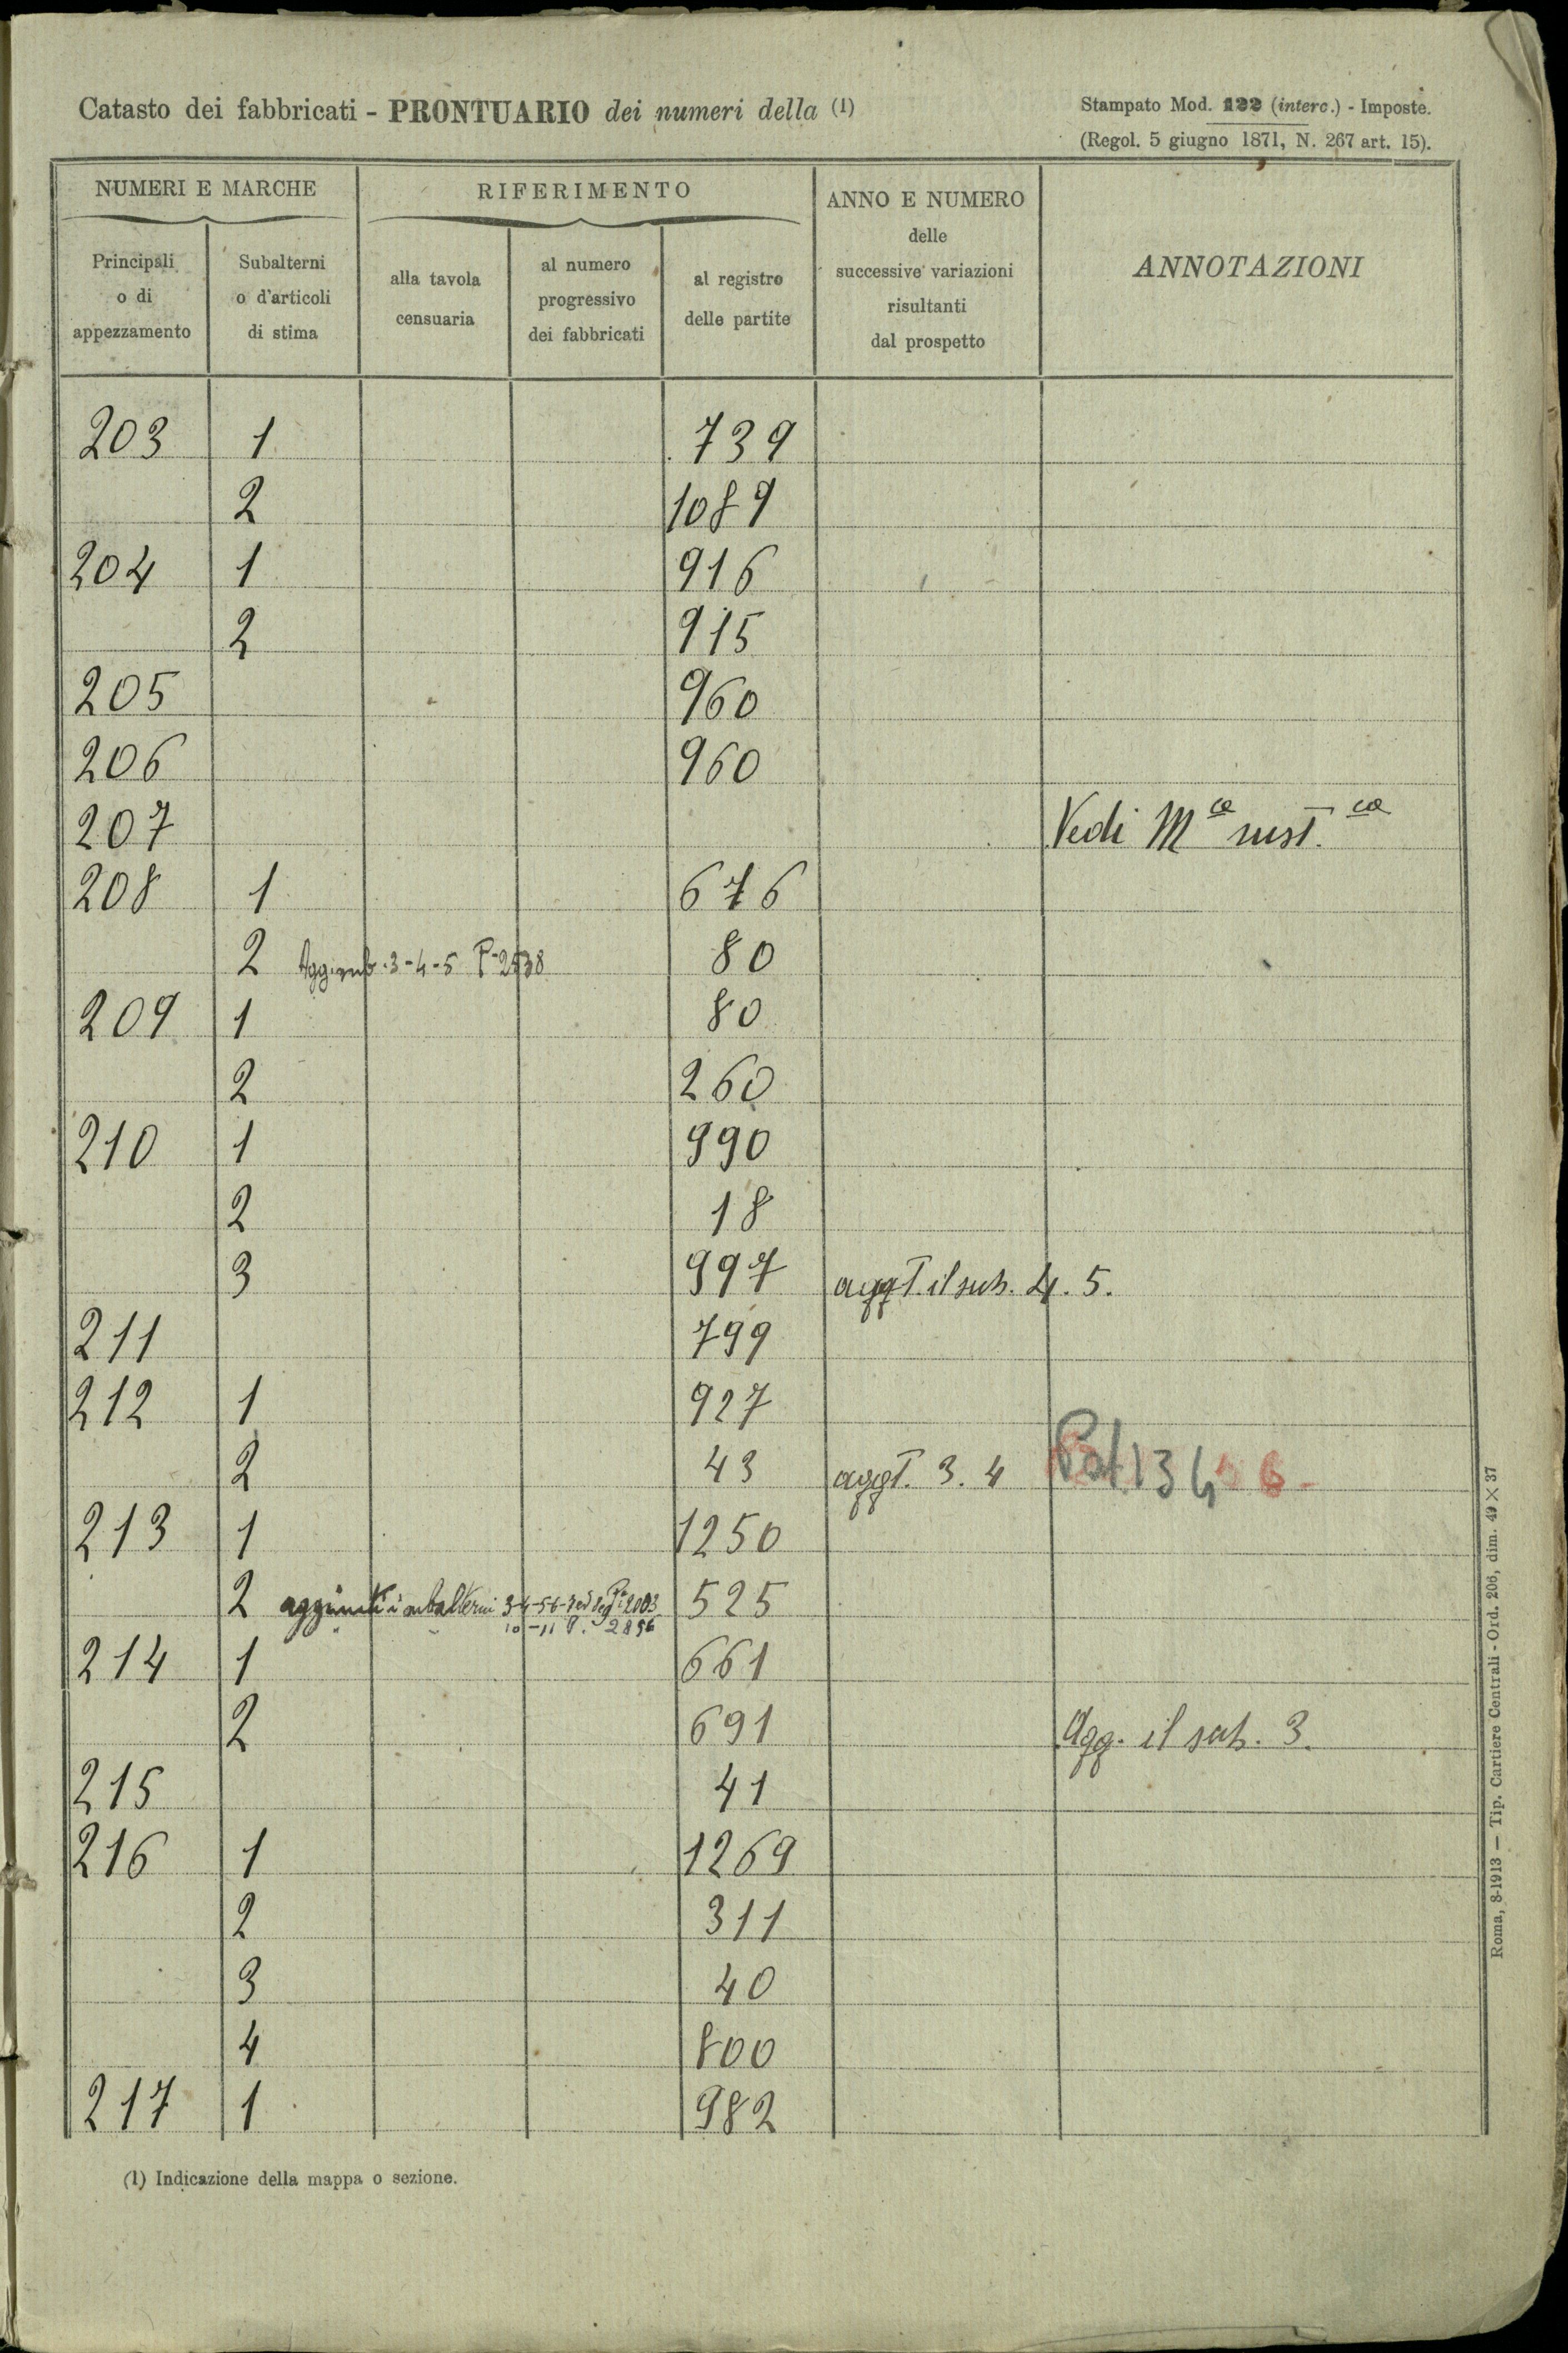 Catasto dei fabbricati - PRONTUARIO dei numeri della (1)
Stampato Mod. 122 (interc.) - Imposte.
(Regol. 5 giugno 1871, N. 267 art. 15).
NUMERI E MARCHE
RIFERIMENTO
ANNO E NUMERO
delle
successive variazioni
risultanti
dal prospetto
ANNOTAZIONI
Principali
o di
appezzamento
Subalterni
o d'articoli
di stima
alla tavola
censuaria
al numero
progressivo
dei fabbricati
al registro
delle partite
203 1 739
2 1089
204 1 916
2 915
205 960
206 960
207 Vedi Mca rust.ca
208 1 676
2 Agg. sub. 3-4-5 P-2538 80
209 1 80
2 260
210 1 990
2 18
3 997 aggT. il sub. 4. 5.
211 799
212 1 927
2 43 aggT. 3. 4 Pat 134
213 1 1250
2 aggiunti i subalterni 525
10-11 P. 2856
214 1 661
2 691 Agg. il sub. 3.
215 41
216 1 1269
2 311
3 40
4 800
217 1 982
(1) Indicazione della mappa o sezione.
Roma, 8-1913 — Tip. Cartiere Centrali - Ord. 206, dim. 49 × 37